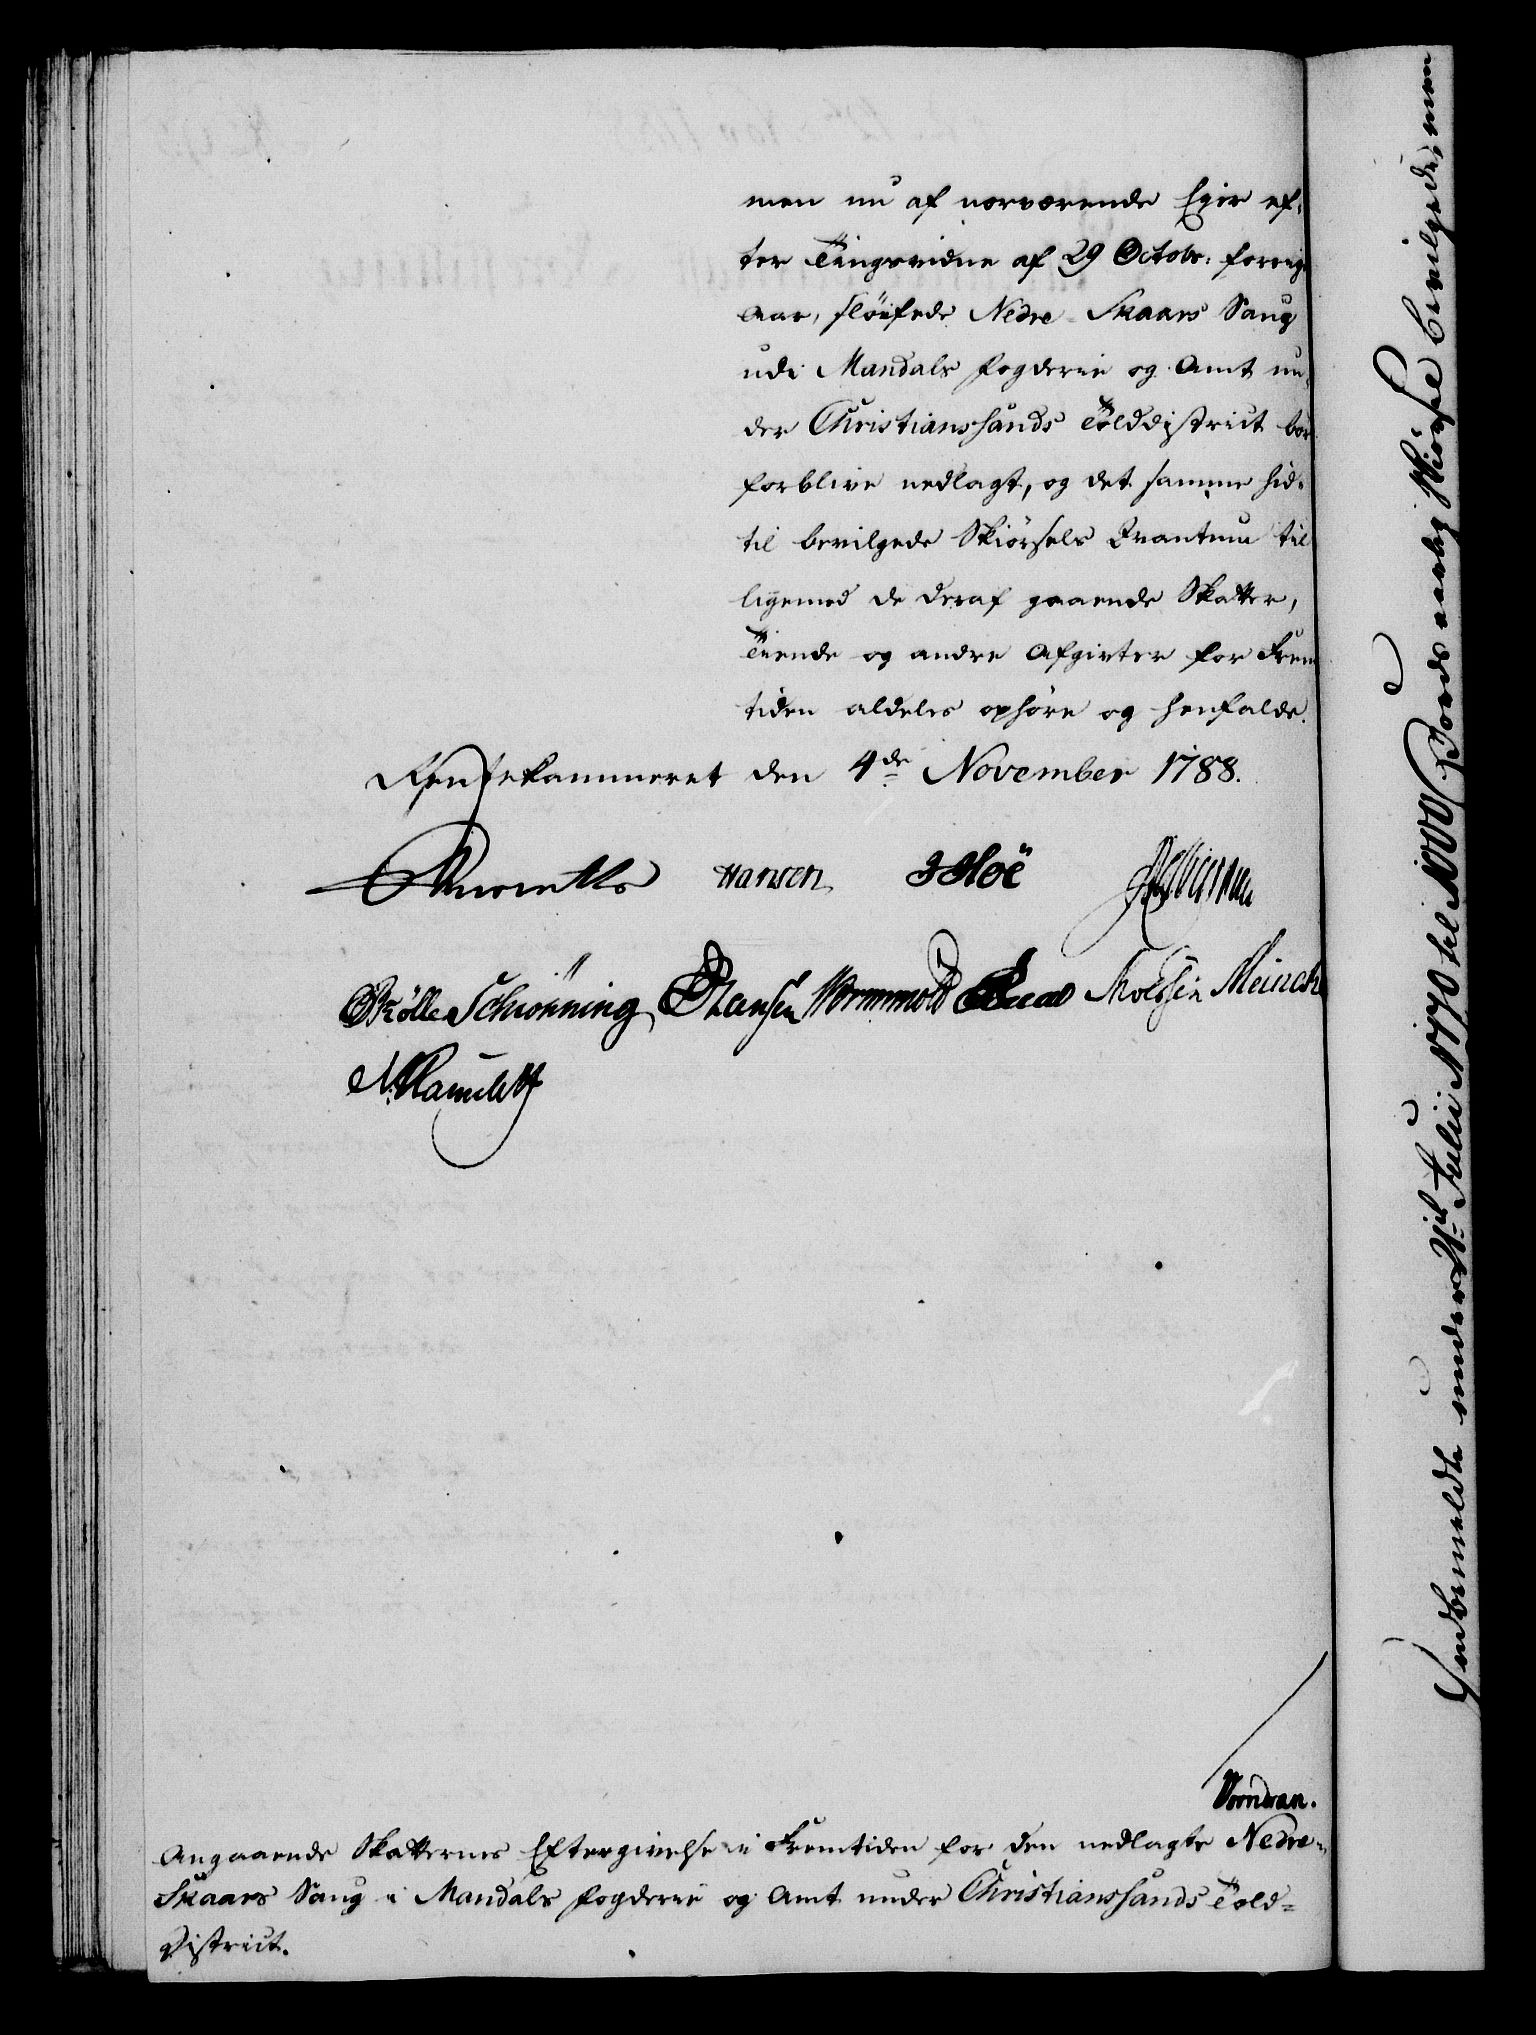 men nu af nærværende Ejer ef-
ter Tingsvidne af 29 Octobr. forrige
Aar, sløifede Nedre-Skaars Saug
udi Mandals Fogderie og Amt un-
der Christianssands Tolddistrict bør
forblive nedlagt, og det samme hid-
til bevilgede Skiørsels Qvantum til
ligemed de deraf gaaende Skatter,
Tiende og andre Afgivter for Frem
tiden aldeles ophøre og henfalde.
Rentekammeret den 4de November 1788.
Hansen
Schiønning Hansen Wormskold Meinck
Vorndran.
Angaaende Skatternes Eftergivelse i Fremtiden for den nedlagte Nedre-
Skaars Saug i Mandals Fogderie og Amt under Christianssands Told=
District.
Indbemeldte under Julii 1770 til 1000 Bords aarlig Skiørsel bevilgede, men